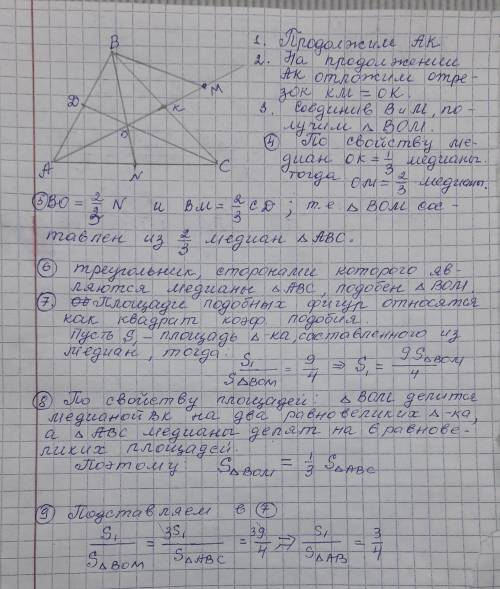 B
D
K
M
O
A
N
C
1. Продолжим АК
2. На продолжении
АК отложим отре-
зок КМ = ОК.
3. Соединив В и М, по-
лучим △ ВОМ.
④ По свойству ме-
диан ОК = 1/3 медианы.
тогда ОМ = 2/3 медианы.
⑤ ВО = 2/3 N и ВМ = 2/3 CD ; т.е △ ВОМ сос-
тавлен из 2/3 медиан △ АВС.
⑥ треугольник, сторонами которого яв-
ляются медианы △ АВС, подобен △ ВОМ.
⑦. Площади подобных фигур относятся
как квадрат коэф. подобия.
Пусть S₁ – площадь △-ка, составленного из
медиан, тогда.
S₁/S△BOM = 9/4 ⇒ S₁ = 9S△BOM/4
⑧ По свойству площадей: △ ВОМ делится
медианой ВК на два равновеликих △-ка,
а △ АВС медианы делят на 6 равнове-
ликих площадей.
Поэтому: S△BOM = 1/3 S△ABC
⑨ Подставляем в ⑦
S₁/S△BOM = 3S₁/S△ABC = 39/4 ⇒ S₁/S△AB = 3/4